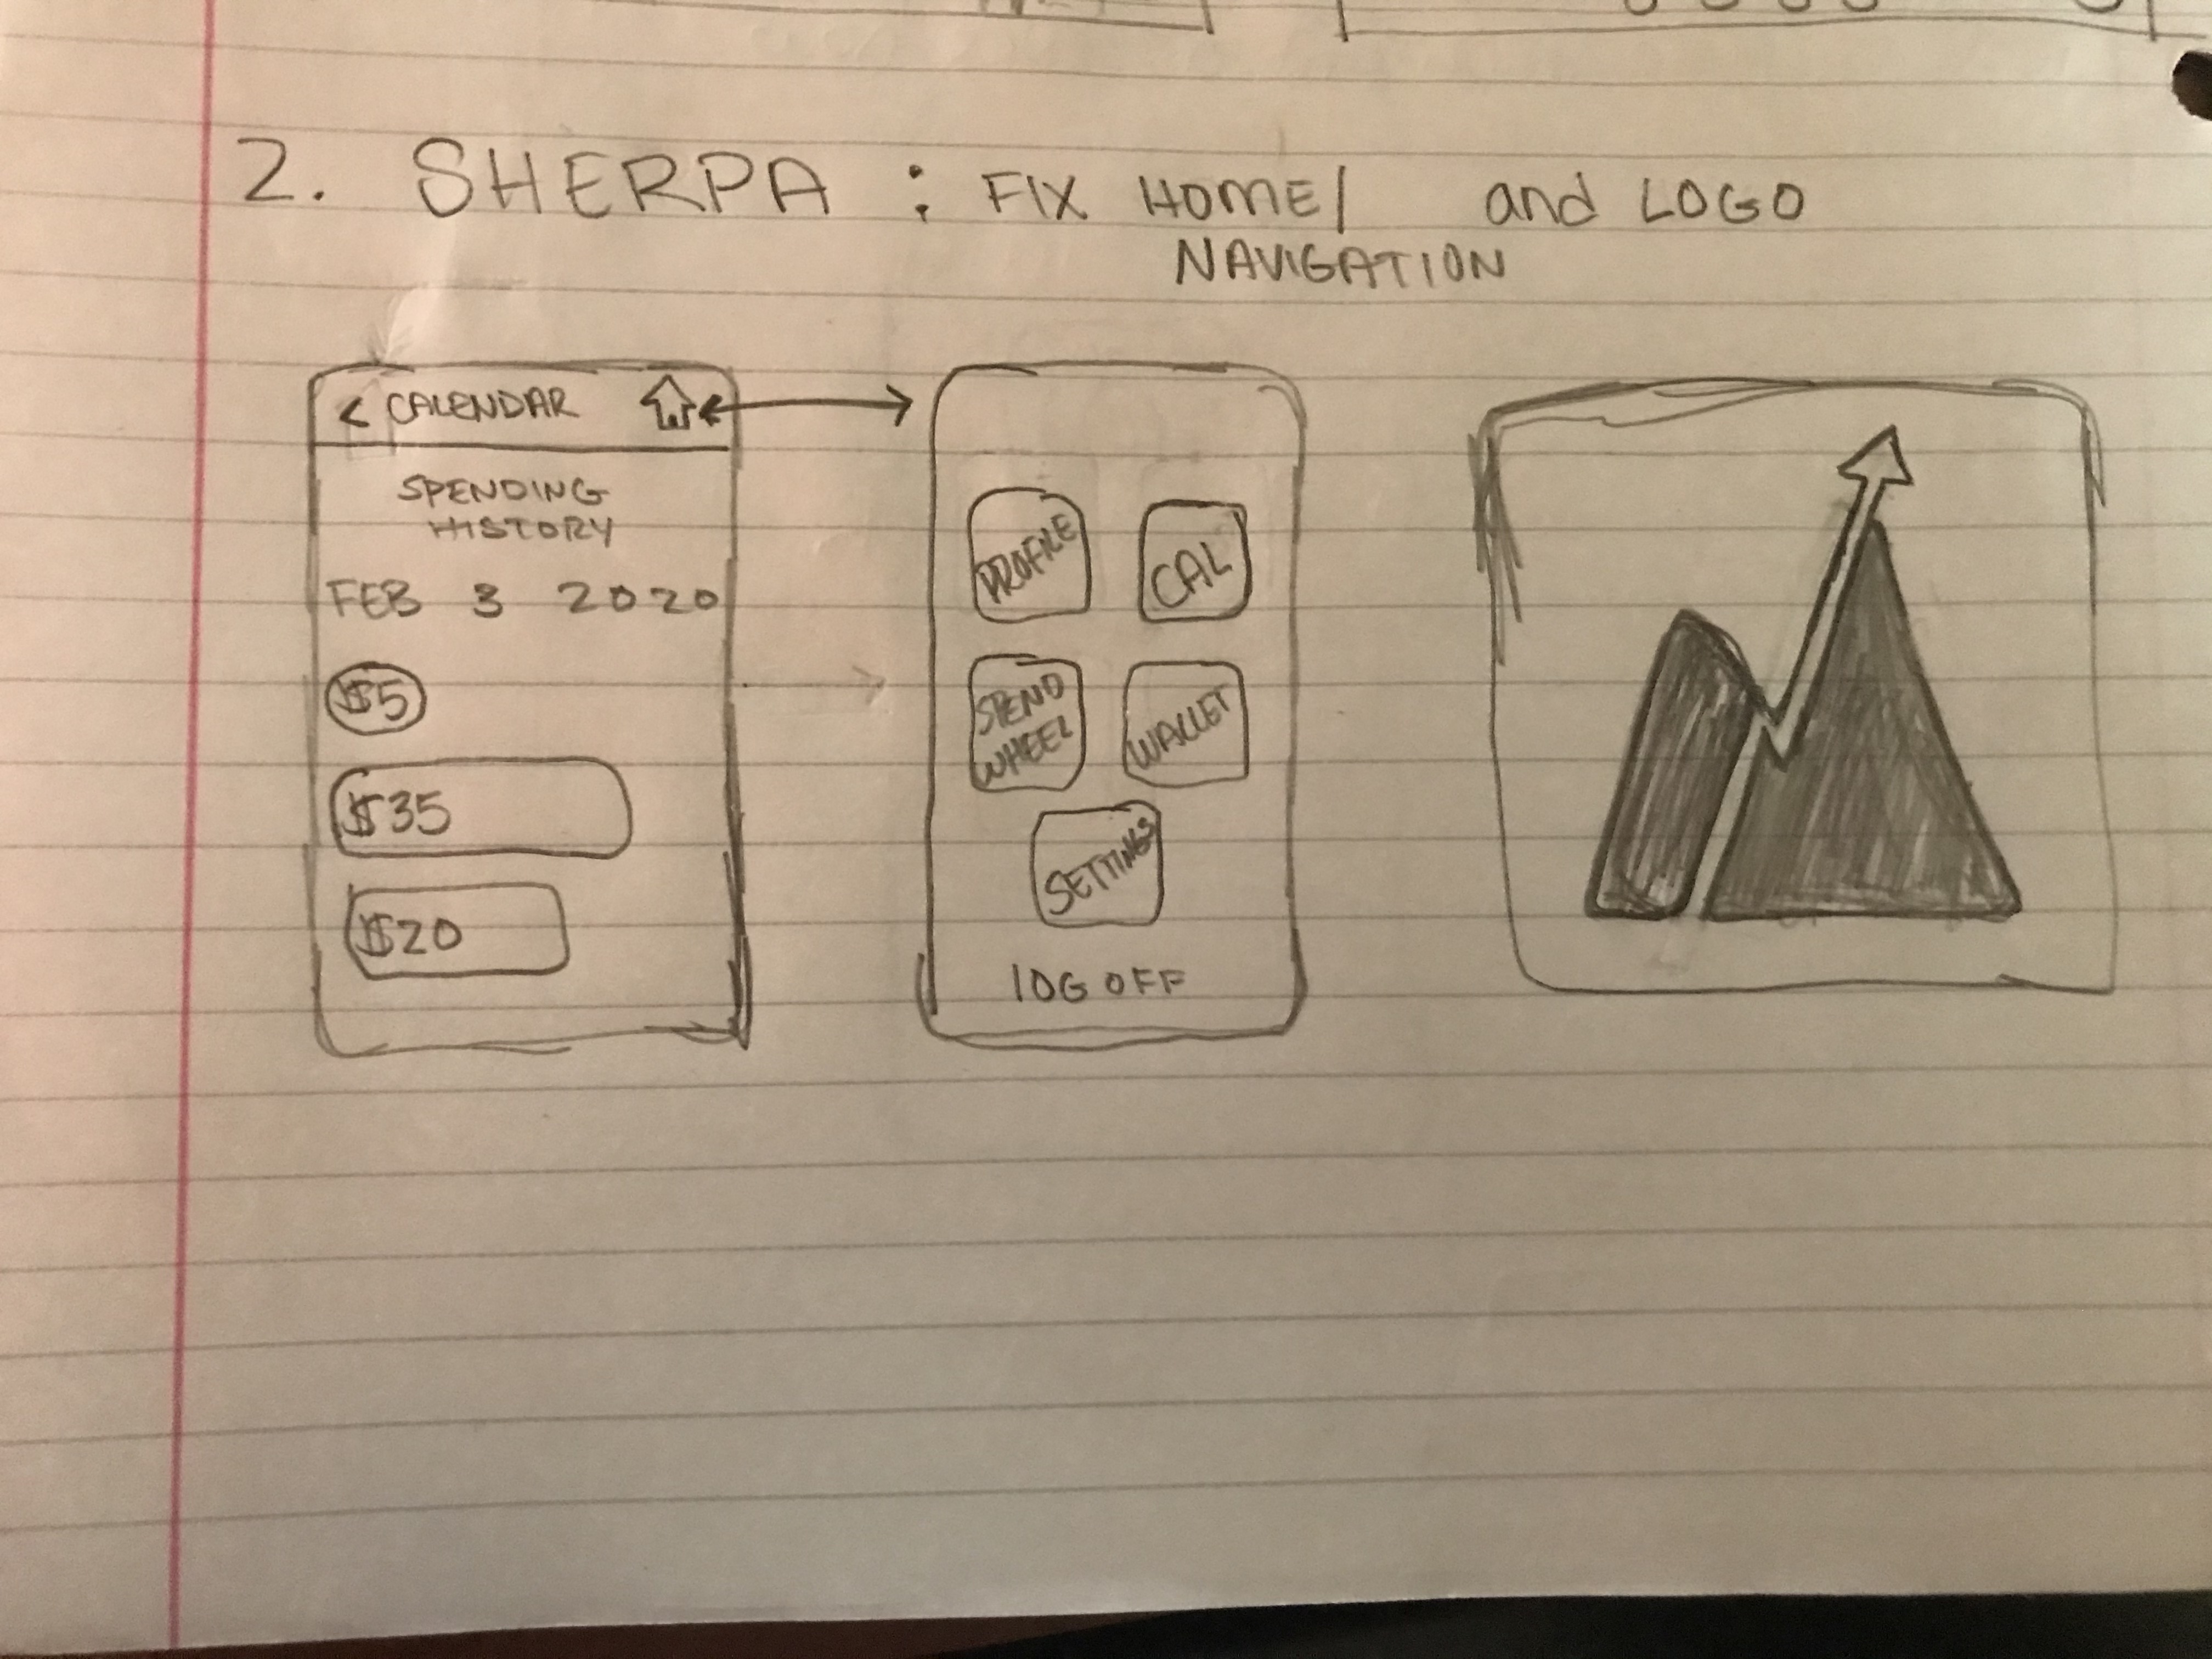 2. SHERPA : FIX HOME/ and LOGO
NAVIGATION
< CALENDAR
SPENDING
HISTORY
FEB 3 2020
$5
$35
$20
PROFILE
CAL
SPEND
WHEEL
WALLET
SETTINGS
LOG OFF